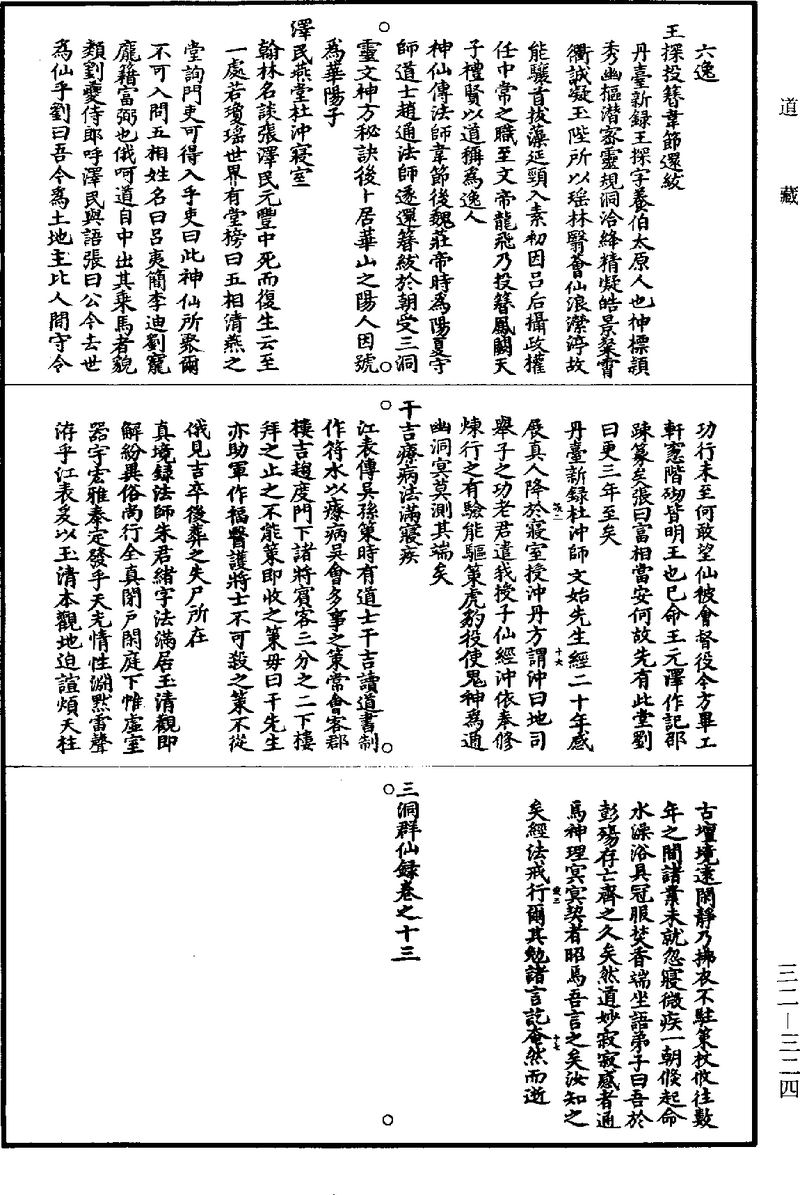 道藏
六逸
王探投簪韋節還紱
丹臺新録王探字養伯太原人也神標穎
秀幽樞潜審靈規洞洽絳精凝皓景粲霄
衢誠凝玉陛所以瑶林翳薈仙浪濴渟故
能驤首拔藻延頸入素初因吕后攝政權
任中常之職至文帝龍飛乃投簪鳳闕天
子禮賢以道稱為逸人
神仙傳法師韋節後魏莊帝時為陽夏守
師道士趙通法師遂還簪紱於朝受三洞
靈文神方秘訣後卜居華山之陽人因號
為華陽子
澤民燕堂杜沖寢室
翰林名談張澤民元豐中死而復生云至
一處若瓊瑶世界有堂榜曰五相清燕之
堂詢門吏可得入乎吏曰此神仙所聚爾
不可入問五相姓名曰吕夷簡李迪劉寵
龐籍富弼也俄呵道自中出其乘馬者貌
類劉夔侍郎呼澤民與語張曰公今去世
為仙乎劉曰吾今為土地主比人間守令
功行未至何敢望仙被會督役今方畢工
軒窻階砌皆明王也已命王元澤作記郡
踈篆矣張曰富相當安何故先有此堂劉
曰更三年至矣
丹臺新録杜沖師文始先生經二十年感
展真人降於寢室授沖丹方謂沖曰地司
舉子之功老君遣我授子仙經沖依奉修
煉行之有驗能驅策虎豹役使鬼神為通
幽洞冥莫測其端矣
干吉療病法滿寢疾
江表傳吳孫策時有道士干吉讀道書制
作符水以療病吳會多事之策常會客郡
樓吉趨度門下諸將賓客三分之二下樓
拜之止之不能策即收之策母曰干先生
亦助軍作福醫護將士不可殺之策不從
俄見吉卒後葬之失尸所在
真境録法師朱君緒字法滿居玉清觀即
解紛異俗尚行全真閉戶閑庭下帷虛室
器宇宏雅奉定發乎天光情性淵默雷聲
洊乎江表爰以玉清本觀地迫諠煩天柱
古壇境遠閑靜乃拂衣不駐策杖攸往數
年之間諸業未就忽寢微疾一朝倏起命
水澡浴具冠服焚香端坐語弟子曰吾於
彭殤存亡齊之久矣然道妙寂寂感者通
焉神理冥冥契者昭焉吾言之矣汝知之
矣經法戒行爾其勉諸言訖奄然而逝
三洞群仙録卷之十三
三二—三二四